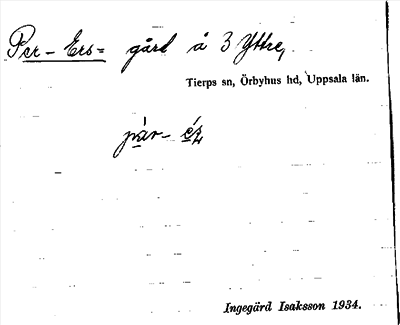 Per-Ers= gård å 3 Yttre,
Tierps sn, Örbyhus hd, Uppsala län.
Ingegärd Isaksson 1934.